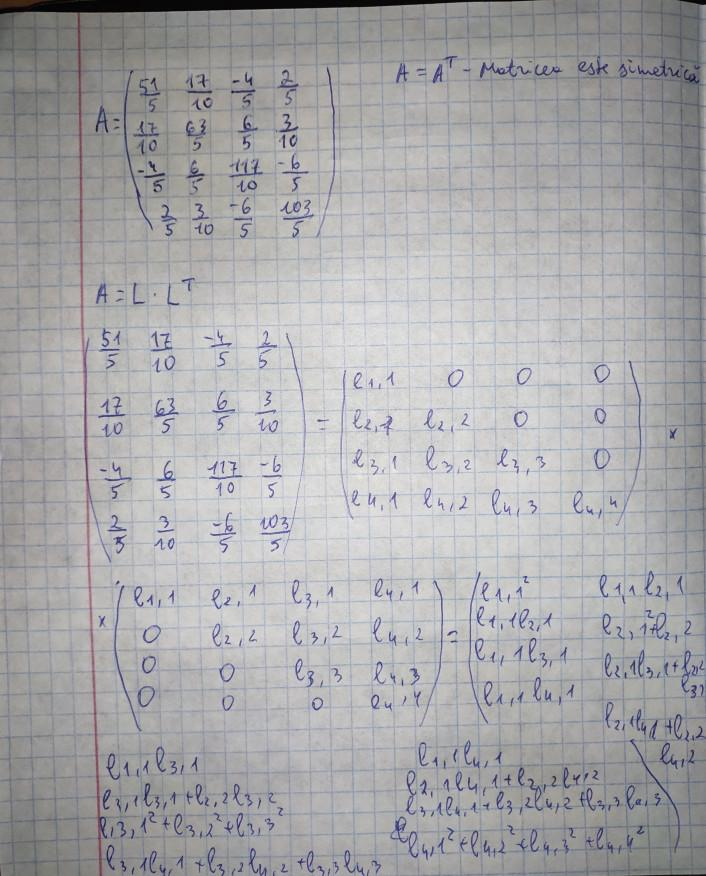 A = A^T - Matricea este simetrică
A = ( 51/5 17/10 -4/5 2/5
17/10 63/5 6/5 3/10
-4/5 6/5 117/10 -6/5
2/5 3/10 -6/5 103/5 )
A = L · L^T
( 51/5 17/10 -4/5 2/5
17/10 63/5 6/5 3/10
-4/5 6/5 117/10 -6/5
2/5 3/10 -6/5 103/5 )
=
( l1,1 0 0 0
l2,1 l2,2 0 0
l3,1 l3,2 l3,3 0
l4,1 l4,2 l4,3 l4,4 ) x
x ( l1,1 l2,1 l3,1 l4,1
0 l2,2 l3,2 l4,2
0 0 l3,3 l4,3
0 0 0 l4,4 )
=
( l1,1² l1,1 l2,1
l1,1l2,1 l2,1²+l2,2
l1,1l3,1 l2,1l3,1+l2,2
l3,
l1,1l4,1 l2,1l4,1+l2,2
l4,2
l1,1l3,1
l2,1l3,1+l2,2l3,2
l3,1²+l3,2²+l3,3²
l3,1l4,1+l3,2l4,2+l3,3l4,3
l1,1l4,1
l2,1l4,1+l2,2l4,2
l3,1l4,1+l3,2l4,2+l3,3l4,3
l4,1²+l4,2²+l4,3²+l4,4² )